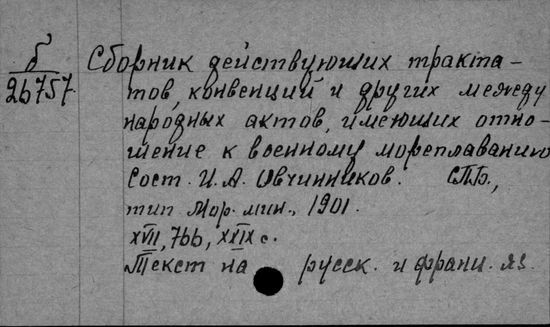 б
26757
Сборник действующих тракта-
тов, конвенций и других между
народных актов, имеющих отно-
шение к военному мореплаванию
Сост. И. А. Овчинников. СПБ.,
тип Мор. мин., 1901.
XVII, 766, XXIX с.
Текст на русск. и франц. яз.